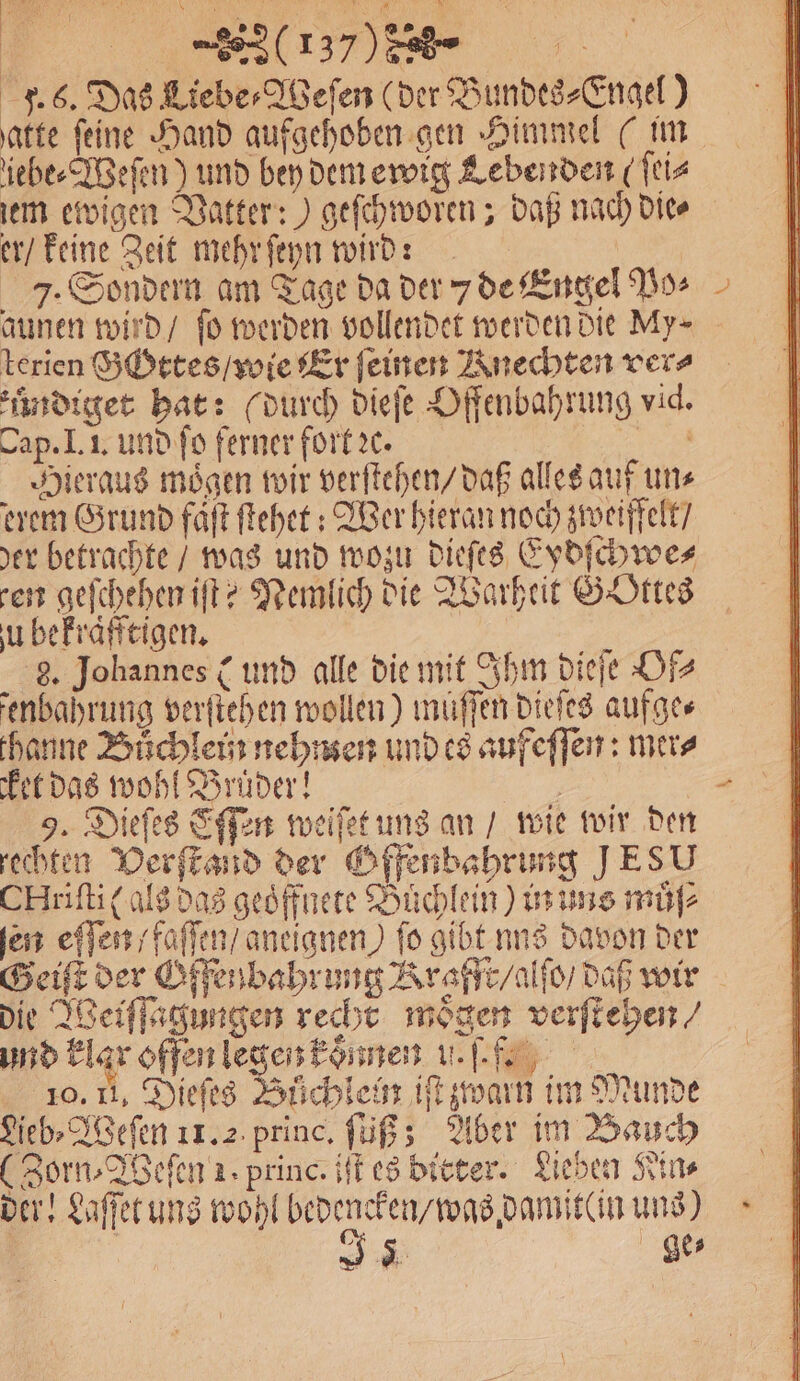 (137)
5. 6. Das Liebe⸗Weſen (der Bundes⸗Engel)
atte ſeine Hand aufgehoben gen Himmel (im
iebe⸗Weſen) und bey dem ewig Lebenden (ſei⸗
em ewigen Vatter:) geſchworen; daß nach die⸗
er/ keine Zeit mehr ſeyn wird:
7. Sondern am Tage da der 7 de Engel Po⸗
aunen wird/ ſo werden vollendet werden die My-
terien GOttes/wie Er ſeinen Knechten ver⸗
kuͤndiget hat: (durch dieſe Offenbahrung vid.
Cap. I. 1. und ſo ferner fort ꝛc.
Hieraus moͤgen wir verſtehen/ daß alles auf un⸗
ſerem Grund faͤſt ſtehet: Wer hieran noch zweiffelt/
der betrachte / was und wozu dieſes Eydſchwe⸗
ren geſchehen iſt? Nemlich die Warheit GOttes
zu bekraͤfftigen.
8. Johannes (und alle die mit Ihm dieſe Of⸗
fenbahrung verſtehen wollen) muͤſſen dieſes aufge⸗
thanne Buͤchlein nehmen und es aufeſſen: mer⸗
cket das wohl Bruͤder!
9. Dieſes Eſſen weiſet uns an / wie wir den
rechten Verſtand der Offenbahrung JESU
CHriſti (als das geoͤffnete Buͤchlein) in uns muͤſ⸗
ſen eſſen/faſſen/aneignen) ſo gibt nns davon der
Geiſt der Offenbahrung Krafft/alſo/ daß wir
die Weiſſagungen recht moͤgen verſtehen/
und klar offen legen koͤnnen u. ſ. f.
10. 11. Dieſes Buͤchlein iſt zwarn im Munde
Lieb⸗Weſen 11. 2. princ. ſuͤß; Aber im Bauch
(Zorn⸗Weſen 1. princ. iſt es bitter. Lieben Kin⸗
der! Laſſet uns wohl bedencken/was damit(in uns)
J 5 ge⸗